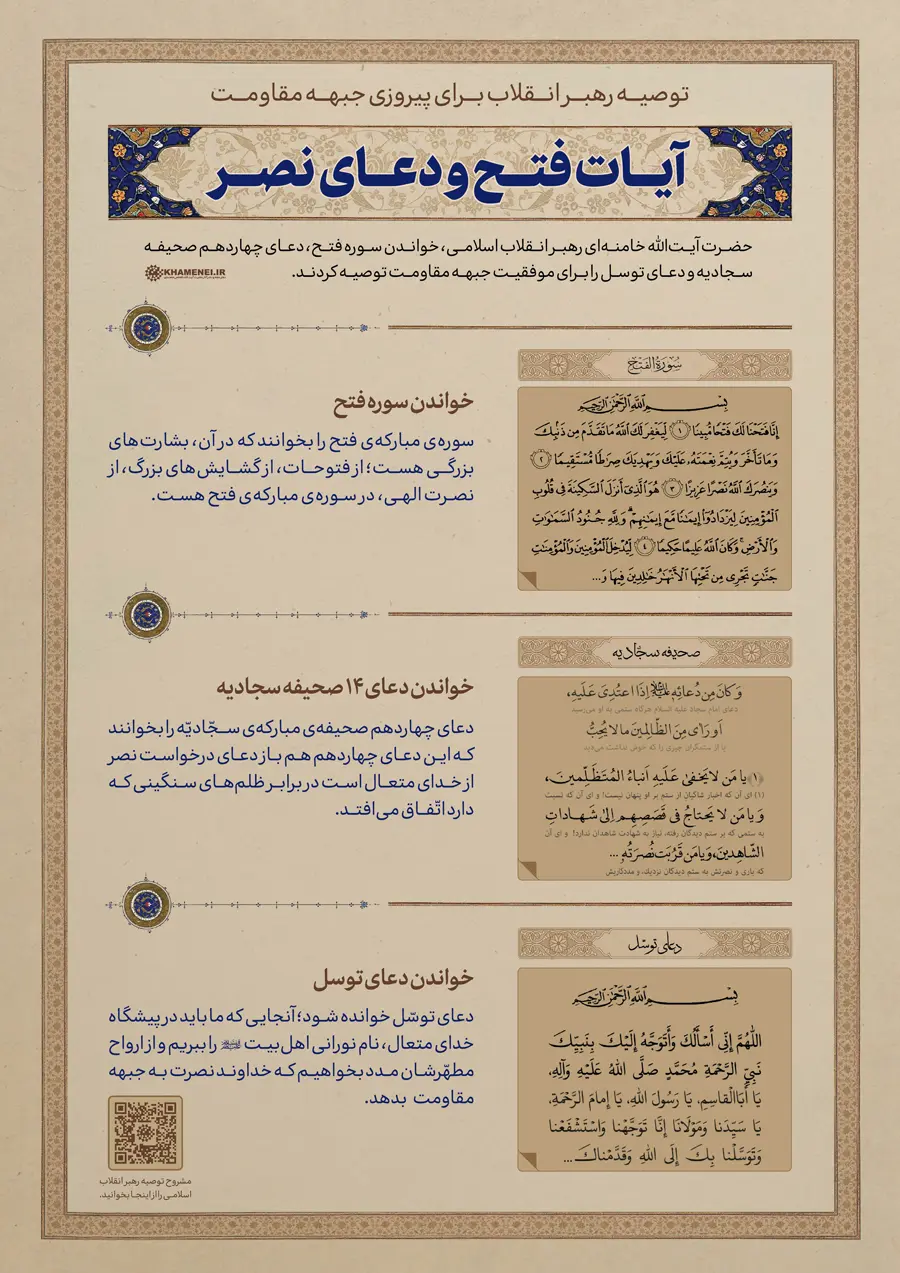 توصیه رهبر انقلاب برای پیروزی جبهه مقاومت
آیات فتح و دعای نصر
حضرت آیت‌الله خامنه‌ای رهبر انقلاب اسلامی، خواندن سوره فتح، دعای چهاردهم صحیفه
سجادیه و دعای توسل را برای موفقیت جبهه مقاومت توصیه کردند.
KHAMENEI.IR
سُورَةُ الفَتْح
بِسْمِ اللَّهِ الرَّحْمَٰنِ الرَّحِيمِ
إِنَّا فَتَحْنَا لَكَ فَتْحًا مُّبِينًا ﴿١﴾ لِّيَغْفِرَ لَكَ اللَّهُ مَا تَقَدَّمَ مِن ذَنۢبِكَ
وَمَا تَأَخَّرَ وَيُتِمَّ نِعْمَتَهُۥ عَلَيْكَ وَيَهْدِيَكَ صِرَاطًا مُّسْتَقِيمًا ﴿٢﴾
وَيَنصُرَكَ اللَّهُ نَصْرًا عَزِيزًا ﴿٣﴾ هُوَ الَّذِي أَنزَلَ السَّكِينَةَ فِي قُلُوبِ
الْمُؤْمِنِينَ لِيَزْدَادُوٓا إِيمَٰنًا مَّعَ إِيمَٰنِهِمْ ۗ وَلِلَّهِ جُنُودُ السَّمَٰوَٰتِ
وَالْأَرْضِ ۚ وَكَانَ اللَّهُ عَلِيمًا حَكِيمًا ﴿٤﴾ لِّيُدْخِلَ الْمُؤْمِنِينَ وَالْمُؤْمِنَٰتِ
جَنَّٰتٍ تَجْرِي مِن تَحْتِهَا الْأَنْهَٰرُ خَٰلِدِينَ فِيهَا وَ...
خواندن سوره فتح
سوره‌ی مبارکه‌ی فتح را بخوانند که در آن، بشارت‌های
بزرگی هست؛ از فتوحات، از گشایش‌های بزرگ، از
نصرت الهی، در سوره‌ی مبارکه‌ی فتح هست.
صحیفه سجادیه
وَ كَانَ مِن دُعائِهِ ﷷ إِذَا اعتُدِيَ عَلَيهِ،
دعای امام سجاد علیه السلام هرگاه ستمی به او می‌رسید
أَو رَأى مِنَ الظّالِمينَ ما لا يُحِبُّ
یا از ستمگران چیزی را که خوش نداشت می‌دید
﴿١﴾ يا مَن لا يَخفى عَلَيهِ أَنباءُ المُتَظَلِّمينَ،
(۱) ای آن که اخبار شاکیان از ستم بر او پنهان نیست! و ای آن که نسبت
وَ يا مَن لا يَحتاجُ في قَصَصِهِم إِلى شَهاداتِ
به ستمی که بر ستم دیدگان رفته، نیاز به شهادت شاهدان ندارد! و ای آن
الشّاهِدينَ، وَ يا مَن قَرُبَت نُصرَتُهُ ...
که یاری و نصرتش به ستم دیدگان نزدیک، و مددکاریش
خواندن دعای ۱۴ صحیفه سجادیه
دعای چهاردهم صحیفه‌ی مبارکه‌ی سجّادیّه را بخوانند
که این دعای چهاردهم هم باز دعای درخواست نصر
از خدای متعال است در برابر ظلم‌های سنگینی که
دارد اتّفاق می‌افتد.
دعای توسل
بِسْمِ اللَّهِ الرَّحْمَٰنِ الرَّحِيمِ
اللّٰهُمَّ إِنِّي أَسْأَلُكَ وَأَتَوَجَّهُ إِلَيْكَ بِنَبِيِّكَ
نَبِيِّ الرَّحْمَةِ مُحَمَّدٍ صَلَّى اللهُ عَلَيْهِ وَآلِهِ،
يَا أَبَا الْقاسِمِ، يَا رَسُولَ اللهِ، يَا إِمامَ الرَّحْمَةِ،
يَا سَيِّدَنا وَمَوْلَانا إِنَّا تَوَجَّهْنا وَاسْتَشْفَعْنا
وَتَوَسَّلْنا بِكَ إِلَى اللهِ وَقَدَّمْناكَ ...
خواندن دعای توسل
دعای توسّل خوانده شود؛ آنجایی که ما باید در پیشگاه
خدای متعال، نام نورانی اهل بیت را ببریم و از ارواح
مطهّرشان مدد بخواهیم که خداوند نصرت به جبهه
مقاومت بدهد.
مشروح توصیه رهبر انقلاب
اسلامی را از اینجا بخوانید.